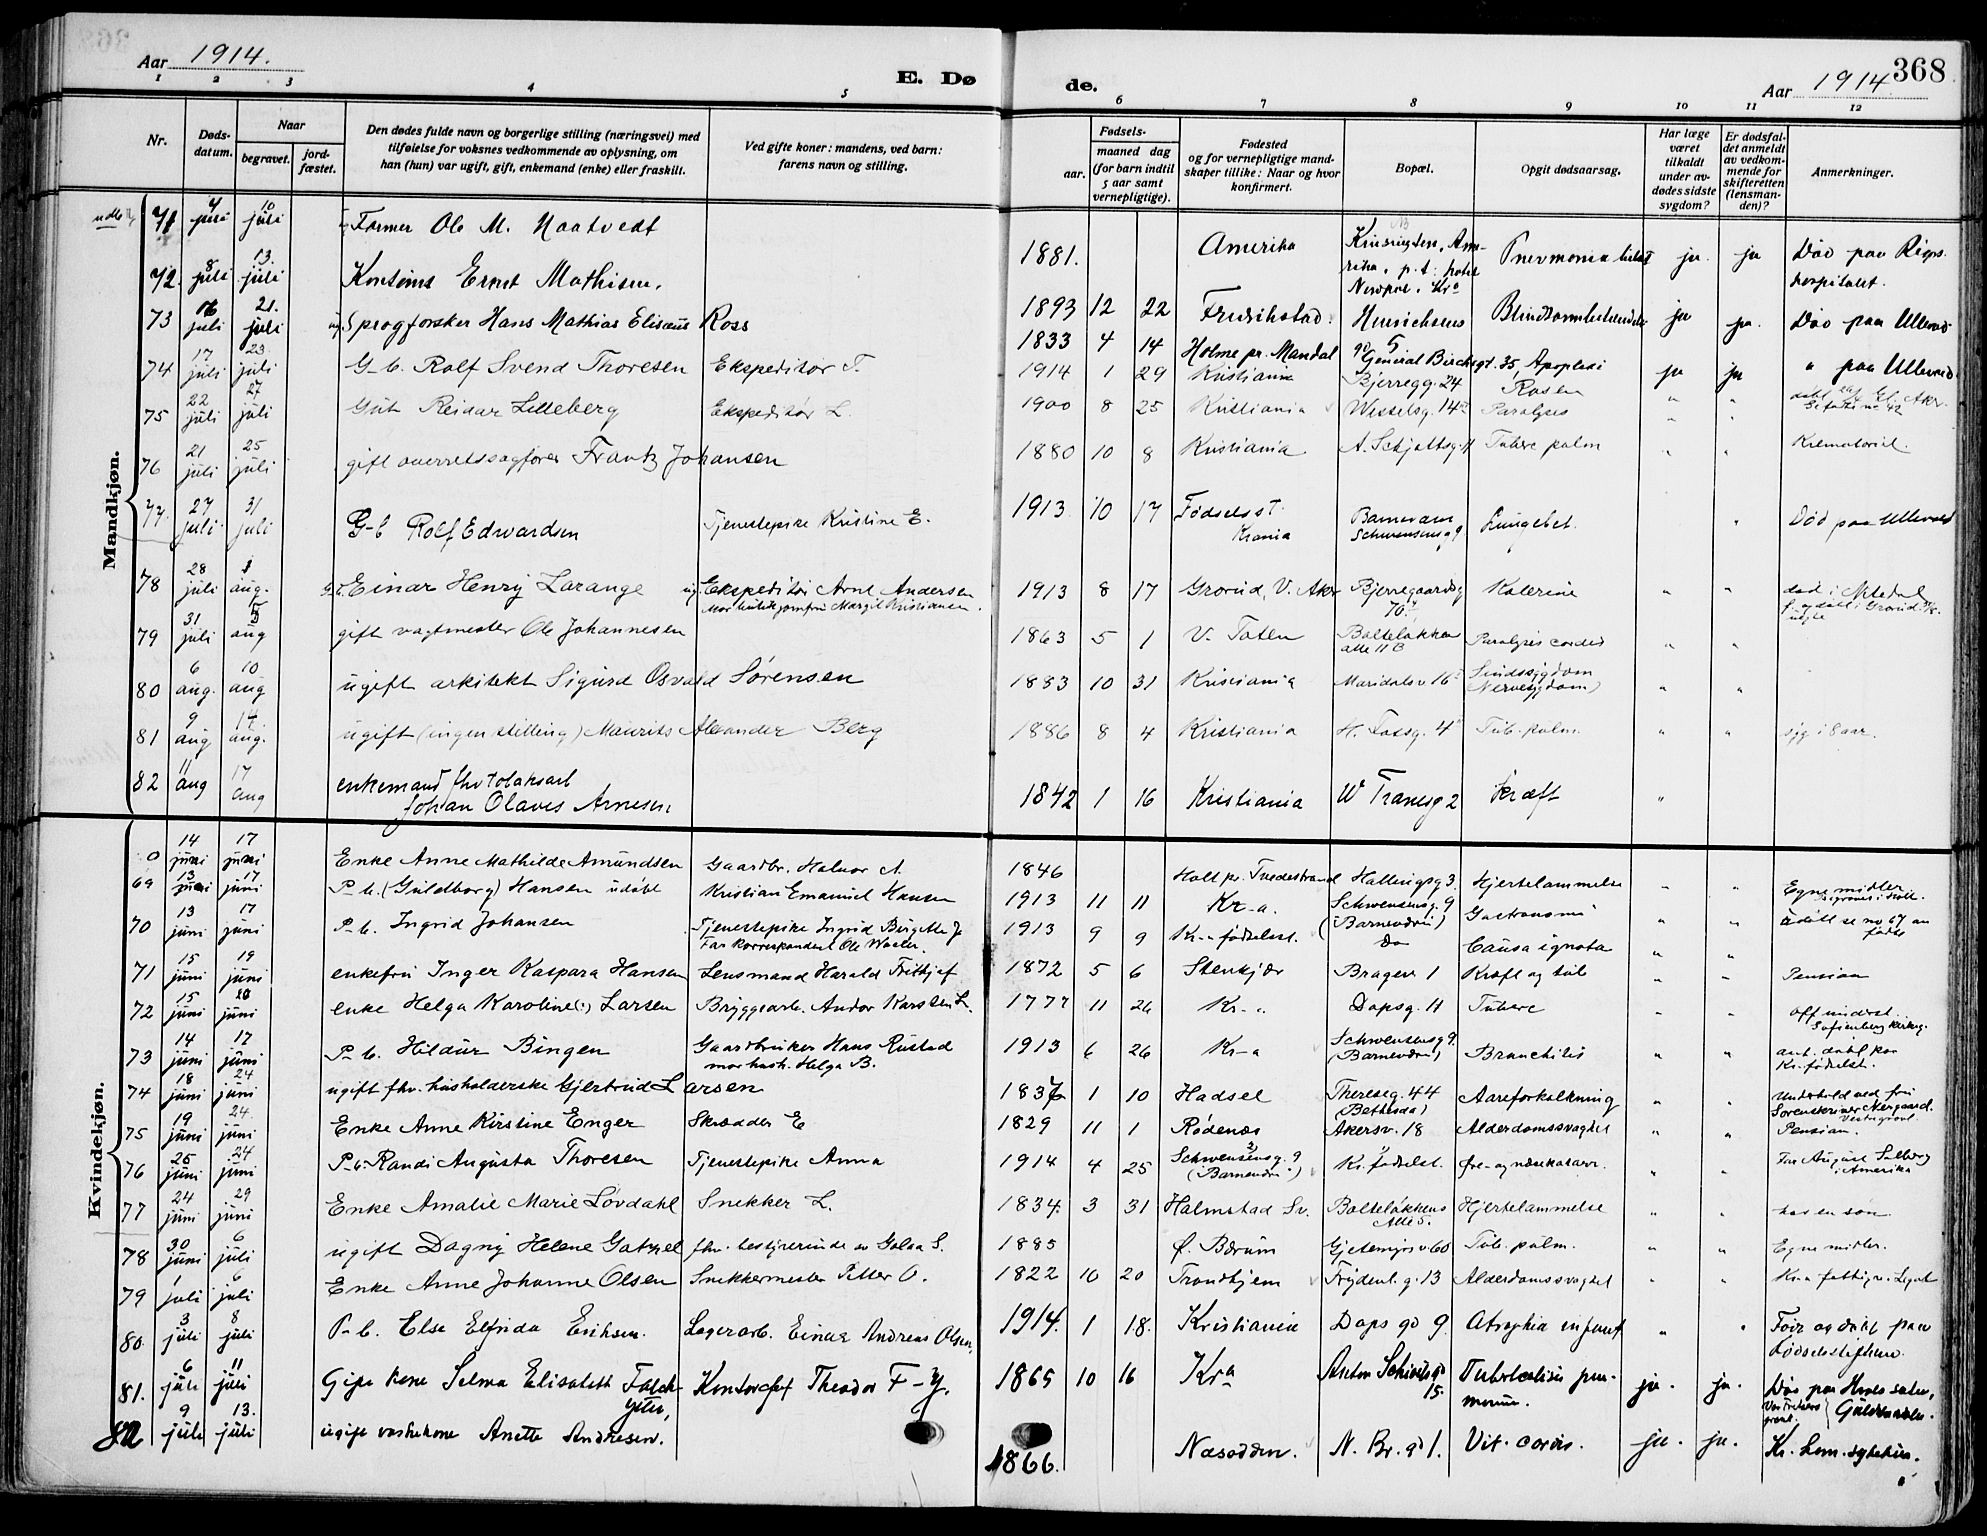 Aar 1914.
E. Døde.
Aar 1914
368
1 2 3 4 5 6 7 8 9 10 11 12
Nr.
Døds-datum.
Naar
begravet.
jord-fæstet.
Den dødes fulde navn og borgerlige stilling (næringsvei) med
tilføielse for voksnes vedkommende av oplysning, om
han (hun) var ugift, gift, enkemand (enke) eller fraskilt.
Ved gifte koner: mandens, ved barn:
farens navn og stilling.
Fødsels-
aar.
maaned dag
(for barn indtil
5 aar samt
vernepligtige).
Fødested
og for vernepligtige mand-
skaper tillike: Naar og hvor
konfirmert.
Bopæl.
Opgit dødsaarsag.
Har læge
været
tilkaldt
under av-
dødes sidste
sygdom?
Er dødsfal-
det anmeldt
av vedkom-
mende for
skifteretten
(lensman-
den)?
Anmerkninger.
Mandkjøn.
71 4 juli 10 juli Farmer Ole M. Naatvedt 1881. Amerika ja. ja Død paa Rigs-
hospitalet.
72. 8 juli 13. juli Ernst Mathisen. 1893 12 22 Fredrikstad. Hinrichsens ja ja. Død paa Ullevaal
73 16 juli 21. juli Sprogforsker Hans Mathias Elisæus Ross 1833 4 14 Holme pr. Mandal General Birchsgt. 35, Apopleksi ja ja " paa Ullevaal
74 17 juli 23. juli G-b. Rolf Svend Thoresen Ekspeditør T. 1914 1 29 Kristiania Bjerregg. 24 Rosen " "
75 22 juli 27 juli Gut Reidar Lilleberg Ekspeditør L. 1900 8 25 Kristiania Wesselsg. 14 Paralyses " "
76 21 juli 25 juli gift overretssagfører Frantz Johansen 1880 10 8 Kristiania A. Schjøttsg. 11 Tuberc pulm " " Krematoriet.
77. 27 juli 31 juli G-b Rolf Edwardsen Tjenestepike Kristine E. 1913 10 17 Fødselsst. Krania Schwensensg 9 Lungebet. " Død paa Ullevaal
78 28 juli 1 aug. Einar Henry Larange ug. Ekspeditør Arne Andersen
Margit Kristiansen. 1913 8 17 Grorud, V. Aker Bjerregaardsg 70 Kolerine " " død i Nitedal
79 31 juli 5 aug gift vagtmester Ole Johannesen 1863 5 1 V. Toten Bolteløkken alle 11 B Paralysis cordis " "
80 6 aug. 10 aug ugift arkitekt Sigurd Osvald Sørensen 1883 10 31 Kristiania Maridalsv 16 Sindssygdom
(Nervesygdom) " "
81 9 aug 14. aug. ugift (ingen stilling) Maurits Alexander Berg 1886 8 4 Kristiania H. Fossg. 4 Tub. pulm. " " syg i 8 aar.
82 11 aug 17 aug enkemand fhv toldopsakt
Johan Olaves Arnesen 1842 1 16 Kristiania W Tranesg 2 Kræft "
Kvindekjøn.
14 juni 17 juni Enke Anne Mathilde Amundsen Gaardbr. Halvor A. 1846 Holt pr. Tvedestrand Hallingsg 3. Hjertelammelse " " Egne midler
69 13 juni 17 juni P-b. (Guldborg) Hansen udøbt Kristian Emanuel Hansen 1913 11 11 Kr-a. Schwensensg. 9 " "
70 13 juni 17 juni P-b. Ingrid Johansen Tjenestepike Ingrid Birgitte J.
Far Korrespondent Ole 1913 9 9 Kr-a fødselsst. do Causa ignota " "
71 15 juni 19 juni enkefru Inger Kaspara Hansen Lensmand Harald Frithjof 1872 5 6 Stenkjær Bragesv. 1 Kræft og tub " " Pension
72 15 juni 20 juni enke Helga Karoline (?) Larsen Bryggearb. Andor Karsten L. 1777 11 26 Kr-a. Dopsg. 11 Tuberc " "
Sofienberg kirkeg.
73 14 juni 17 juni P-b. Hildur Bingen Gaardbruker Hans Rustad
mor hush. Helga B. 1913 6 26 Kr-a Schwensensg 9. Bronchitis " "
Kr. fødselst.
74 18 juni 24 juni ugift fhv. husholderske Gjertrud Larsen 1837 1 10 Hadsel Theresg. 44
(Bethesda) Aareforkalkning " "
75 19 juni 24. juni Enke Anne Kirstine Enger Skrædder E 1829 11 1 Rødenæs Akersv. 18 Alderdomssvaghet " " Pension.
76 20 juni 24 juni P-b. Randi Augusta Thoresen Tjenestepike Anna 1914 4 25 Schwensensg. 9 Kr. fødselst. Øre- og næsekatarr. " " Far August Solberg
i Amerika
77 24 juni 29 juni Enke Amalie Marie Løvdahl Snekker L. 1834. 3 31 Halmstad Sv. Bolteløkkens
Alle 5. Hjertelammelse " " har en søn
78 30 juni 6 juli ugift Dagny Helene fhv. bestyrerinde 1885 Ø. Bærum Gjetemyrsv. 60 Tub. pulm. " " Egne midler.
79 1 juli 6 juli Enke Anne Johanne Olsen Snekkermester Petter O. 1822 10 20 Trondhjem Frydenl. g. 13 Alderdomssvaghet " " Kr-a fattigv. Legat
80. 3 juli 8 juli P-b. Else Elfrida Eriksen. Lagerarb. Einar Andreas Olsen, 1914. 1 18. Kristiania Dops gd 9. Atrophia infant " " Fød og døbt paa
Fødselsstiftelsen.
81. 6 juli 11 juli Gift kone Selma Elisabeth Falck-
Ytter, Kontorchef Theodor F-Y. 1865 10 16 Kra 15. ja. ja.
82 9 juli 13. juli ugift vaskekone Anette Andresen. 1866. Næsodden. N. Br. gd 1. Vit. cordis. ja. ja. Kr. kom. sykehus.